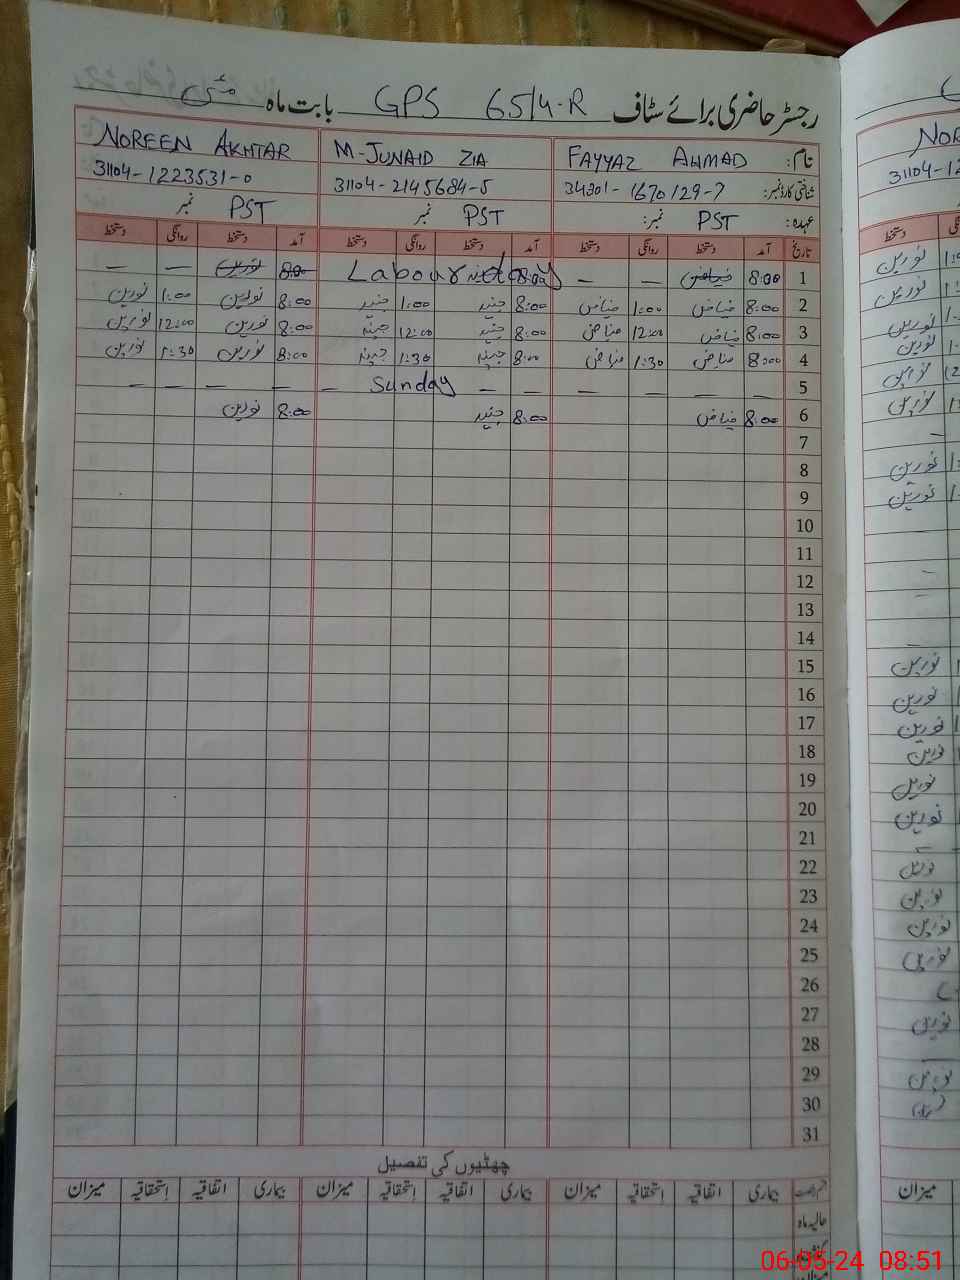 رجسٹر حاضری برائے سٹاف GPS 65/4-R بابت ماہ مئی
نام: FAYYAZ AHMAD M-JUNAID ZIA NOREEN AKHTAR
شناختی کارڈ نمبر: 34201-1670129-7 31104-2145684-5 31104-1223531-0
عہدہ: PST نمبر: PST نمبر PST نمبر
تاریخ آمد دستخط روانگی دستخط آمد دستخط روانگی دستخط آمد دستخط روانگی دستخط
1 8:00 فیاض — — Labour day 8:00 8:00 نورین — —
2 8:00 فیاض 1:00 فیاض 8:00 جنید 1:00 جنید 8:00 نورین 1:00 نورین
3 8:00 فیاض 12:00 فیاض 8:00 جنید 12:00 جنید 8:00 نورین 12:00 نورین
4 8:00 فیاض 1:30 فیاض 8:00 جنید 1:30 جنید 8:00 نورین 1:30 نورین
5 — — — — — Sunday — — — — —
6 8:00 فیاض 8:00 جنید 8:00 نورین
7
8
9
10
11
12
13
14
15
16
17
18
19
20
21
22
23
24
25
26
27
28
29
30
31
چھٹیوں کی تفصیل
بیماری اتفاقیہ استحقاقیہ میزان بیماری اتفاقیہ استحقاقیہ میزان بیماری اتفاقیہ استحقاقیہ میزان
حالیہ ماہ
06-05-24 08:51